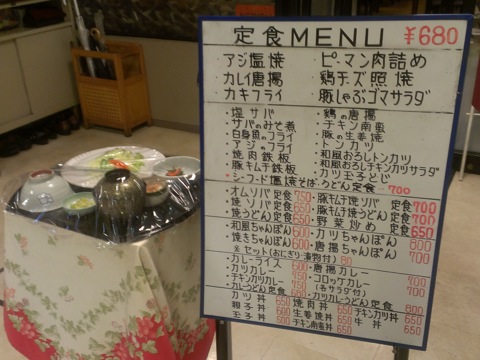 定食MENU ¥680
・アジ塩焼 ・ピーマン肉詰め
・カレイ唐揚 ・鶏チーズ照焼
・カキフライ ・豚しゃぶゴマサラダ
・塩サバ ・鶏の唐揚
・サバのみそ煮 ・チキン南蛮
・白身魚のフライ ・豚の生姜焼
・アジのフライ ・トンカツ
・焼肉鉄板 ・和風おろしトンカツ
・豚キムチ鉄板 ・和風おろしチキンカツサラダ
・カツ玉子とじ
・シーフード塩焼そば・うどん定食 700
・オムソバ定食 750 ・豚キムチ焼ソバ定食 700
・焼ソバ定食 650 ・豚キムチ焼うどん定食 700
・焼うどん定食 650 ・野菜炒め定食 650
・和風ちゃんぽん 600 ・カツちゃんぽん 800
・焼きちゃんぽん 600 ・唐揚ちゃんぽん 700
※セット(おにぎり・漬物付) 80
・カレーライス 600 ・唐揚カレー 700
・カツカレー 700 ・コロッケカレー 700
・チキンカツカレー (各サラダ付)
・カレーうどん定食 650 ・カツカレーうどん定食 800
カツ丼 650 焼肉丼 650 チキンカツ丼 650
親子丼 600 生姜焼丼 牛丼 650
玉子丼 500 チキン南蛮丼 650